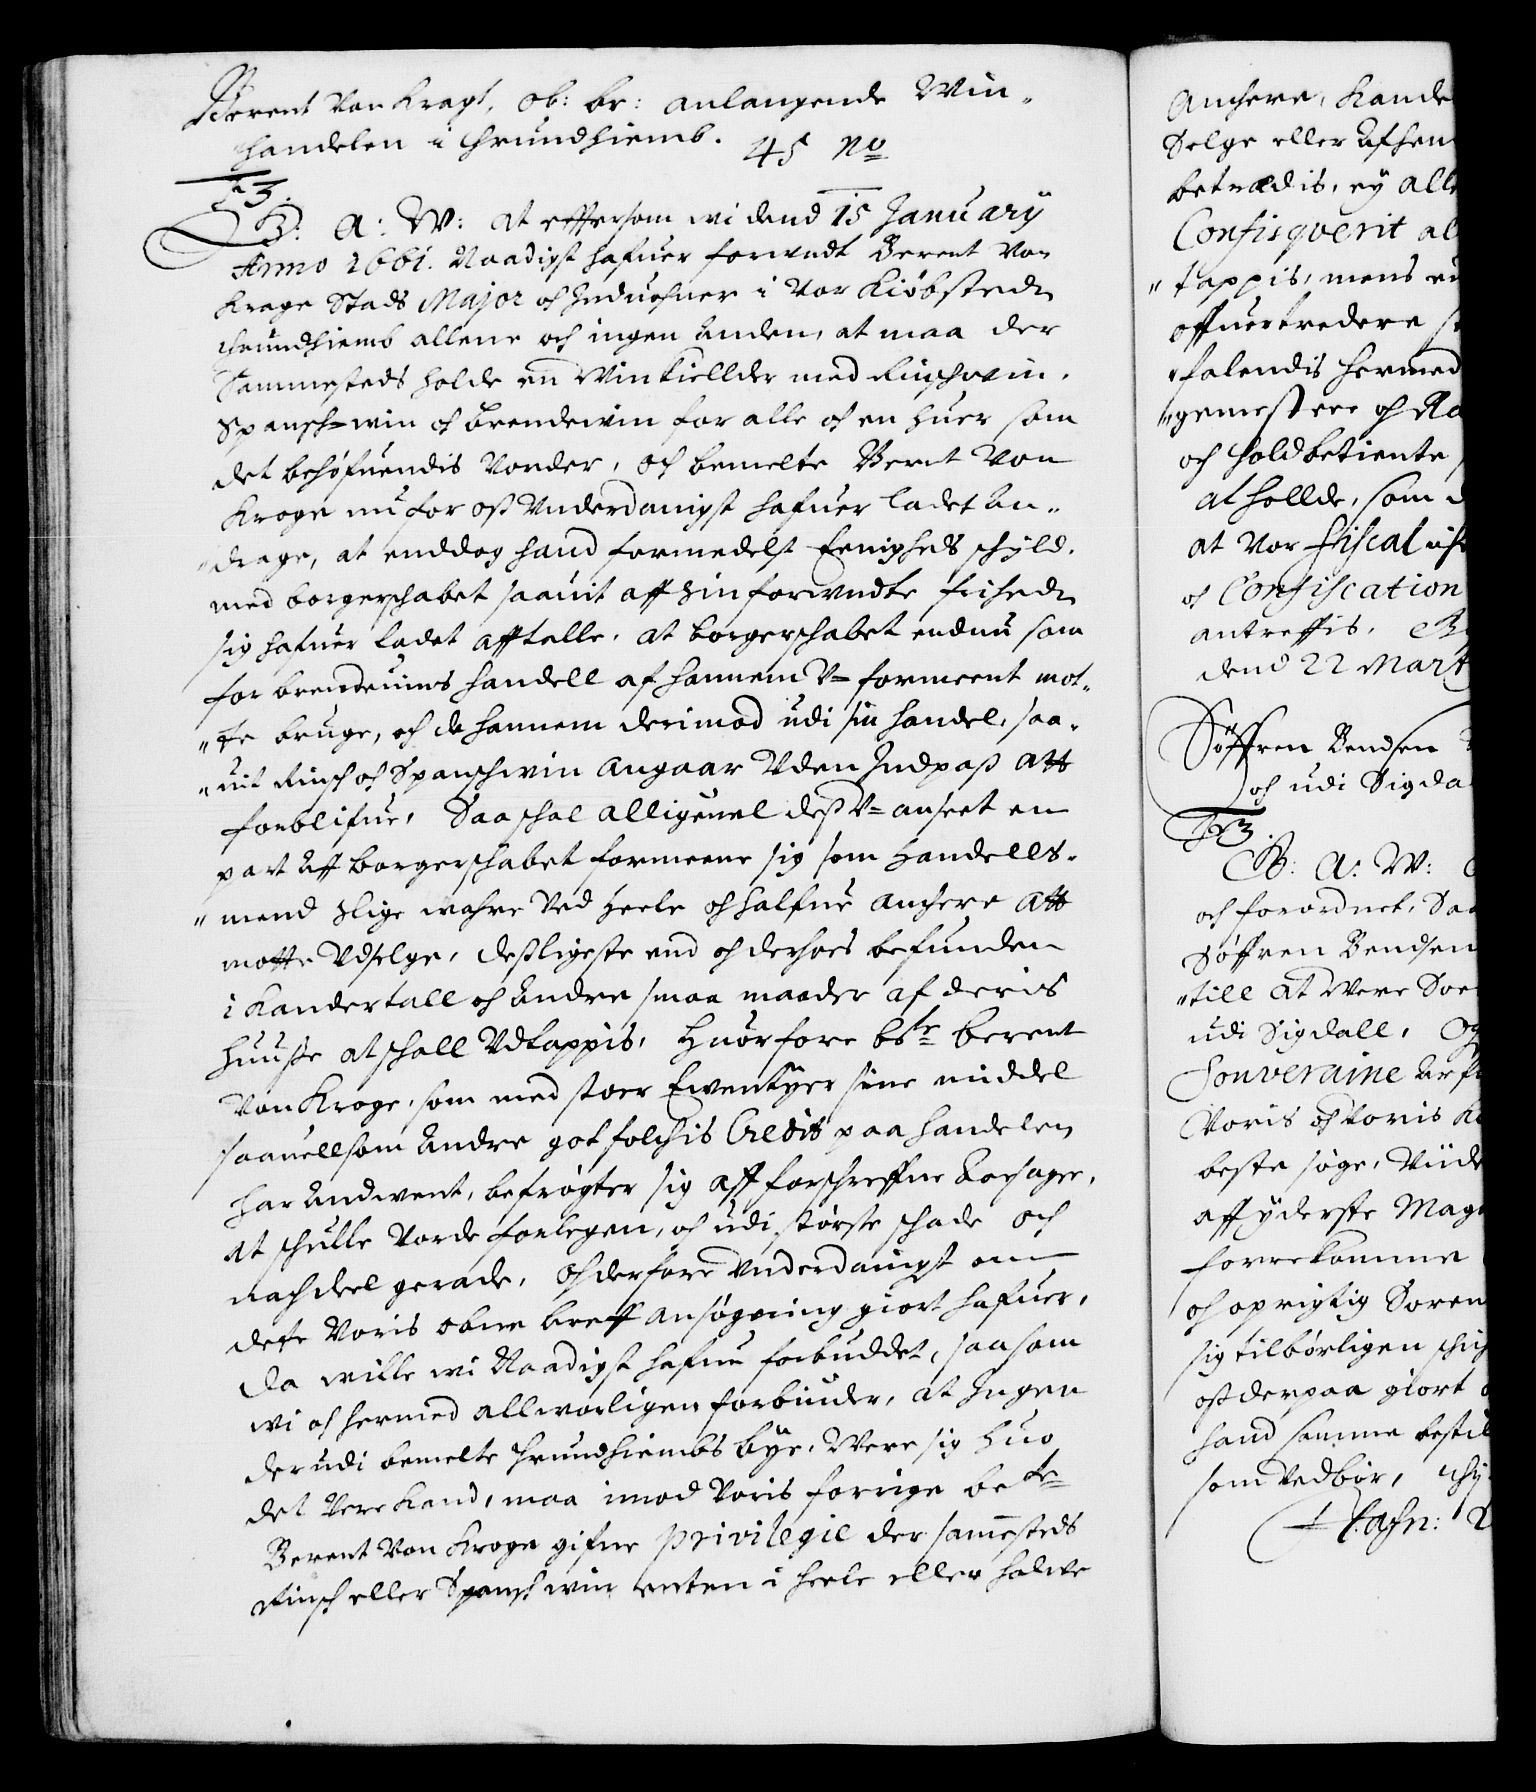 Berent Von Kragt, ob: br: anlangende Win-
handelen i Thrundhiemb. 45 No
F3.
G: A: W: at effersom wi dend 15 January
Anno 1661. Naadigst hafuer forundt Berent Von
Krage Stads Major och Induohner i Vor Kiøbstede
Thrundhiemb allene och ingen Anden, at maa der
Sammesteds holde en Winkielder med Rinschwin,
Spansch=win och brendewin for alle och en huer som
det behøfuendis Vorder, och bemelte Bernt Von
Kroge nu for oss Vnderdanigst hafuer ladet An-
"drage, at enddog hand formedelst Eenigheds schyld,
med borgerschabet saauit aff Sin forundte frihede
sig hafuer ladet afftalle, at borgerschabet endnu som
for brendeuins handell af hannem V=formeent mot-
"te bruge, och de hannem derimod udi sin handel, saa-
"uit Rinsch och Spanschwin angaar Vden Indpass att
forblifue, Saa schal alligeuel dess V=anseet en
part Aff borgerschabet formeene sig som Handells-
"mend Slige wahre Ved heele och halfue anchere att
motte Vdselge, dessligeste end och derhos befunden
i Kandertall och Andre smaa maader af deris
huusse at schall Vdtappis, Huorfore bte berent
Von Kroge, som med stoer Ewentyer sine middel
saauellsom Andre got folchis Credit paa handelen
har Andwent, befrøgter sig aff forschreffne Aarsager,
at schulle Vorde forlegen, och udi største schade och
nachdeel gerade, och derfore Vnderdanigst om
dete Voris obne breff ansøgning giort hafuer,
Da wille wi Naadigst hafue forbuddet, saasom
wi och hermed allworligen forbiuder, at Ingen
der udi bemelte Thrundhiembs bye, Were sig huo
det Vere Kand, maa imod Voris forrige bete
Berent Von Kroge gifne privilegie der sammesteds
Rinsch eller Spansch win enten i heele eller halwe
Anchere, Kande
Selge eller Afhen
betrædis, ey all
Confisqverit al
"tappis, mens
offuertredere
"falendis hermed
"gemestere och Ra
och holdbetiente
at hollde, som
at Vor Fiscal
och Confiscation
antreffis.
dend 22 Mart
Søffren Bendsen
och udi Sigda
F3.
G: A: W:
och forordnet, Saa
Søffren Bendsen
"till at Were Sor
udi Sigdall, Og
Souveraine Arf
Voris och Voris
beste søge, Viide
aff yderste Mag
forrekomme
och oprigtig Soren
sig tilbørligen schick
oss derpaa giort
hand samme bestil
som Vedbør,
Hafn: